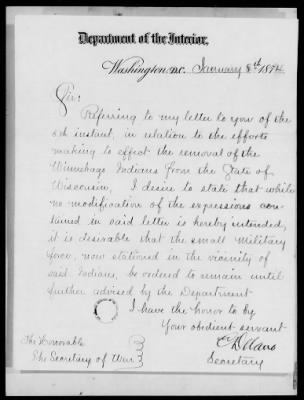 Department of the Interior,
Washington D.C. January 8th 1874
Sir:
Referring to my letter to you of the
6th instant, in relation to the efforts
making to effect the removal of the
Winnebago Indians from the State of
Wisconsin, I desire to state that while
no modification of the expressions con-
tained in said letter is hereby intended,
it is desirable that the small military
force, now stationed in the vicinity of
said Indians, be ordered to remain until
further advised by the Department
I have the honor to by
Your obedient servant
Secretary
The Honorable
The Secretary of War